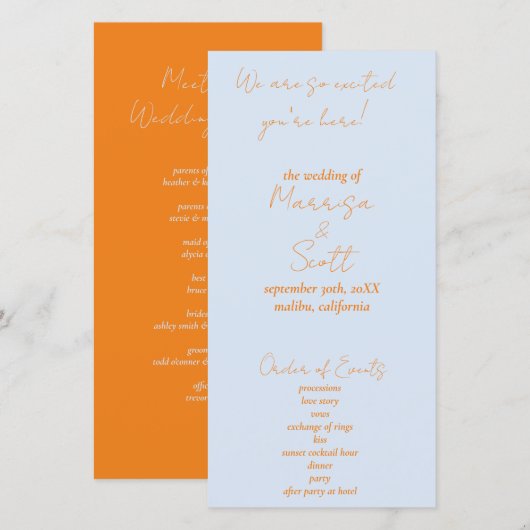 Meet
Wedding
parents of
heather & k
parents
stevie & m
maid o
alycia
best
bruce
brides
ashley smith &
groom
todd o'conner &
offic
trevor
We are so excited
you're here!
the wedding of
Marrisa
&
Scott
september 30th, 20XX
malibu, california
Order of Events
processions
love story
vows
exchange of rings
kiss
sunset cocktail hour
dinner
party
after party at hotel